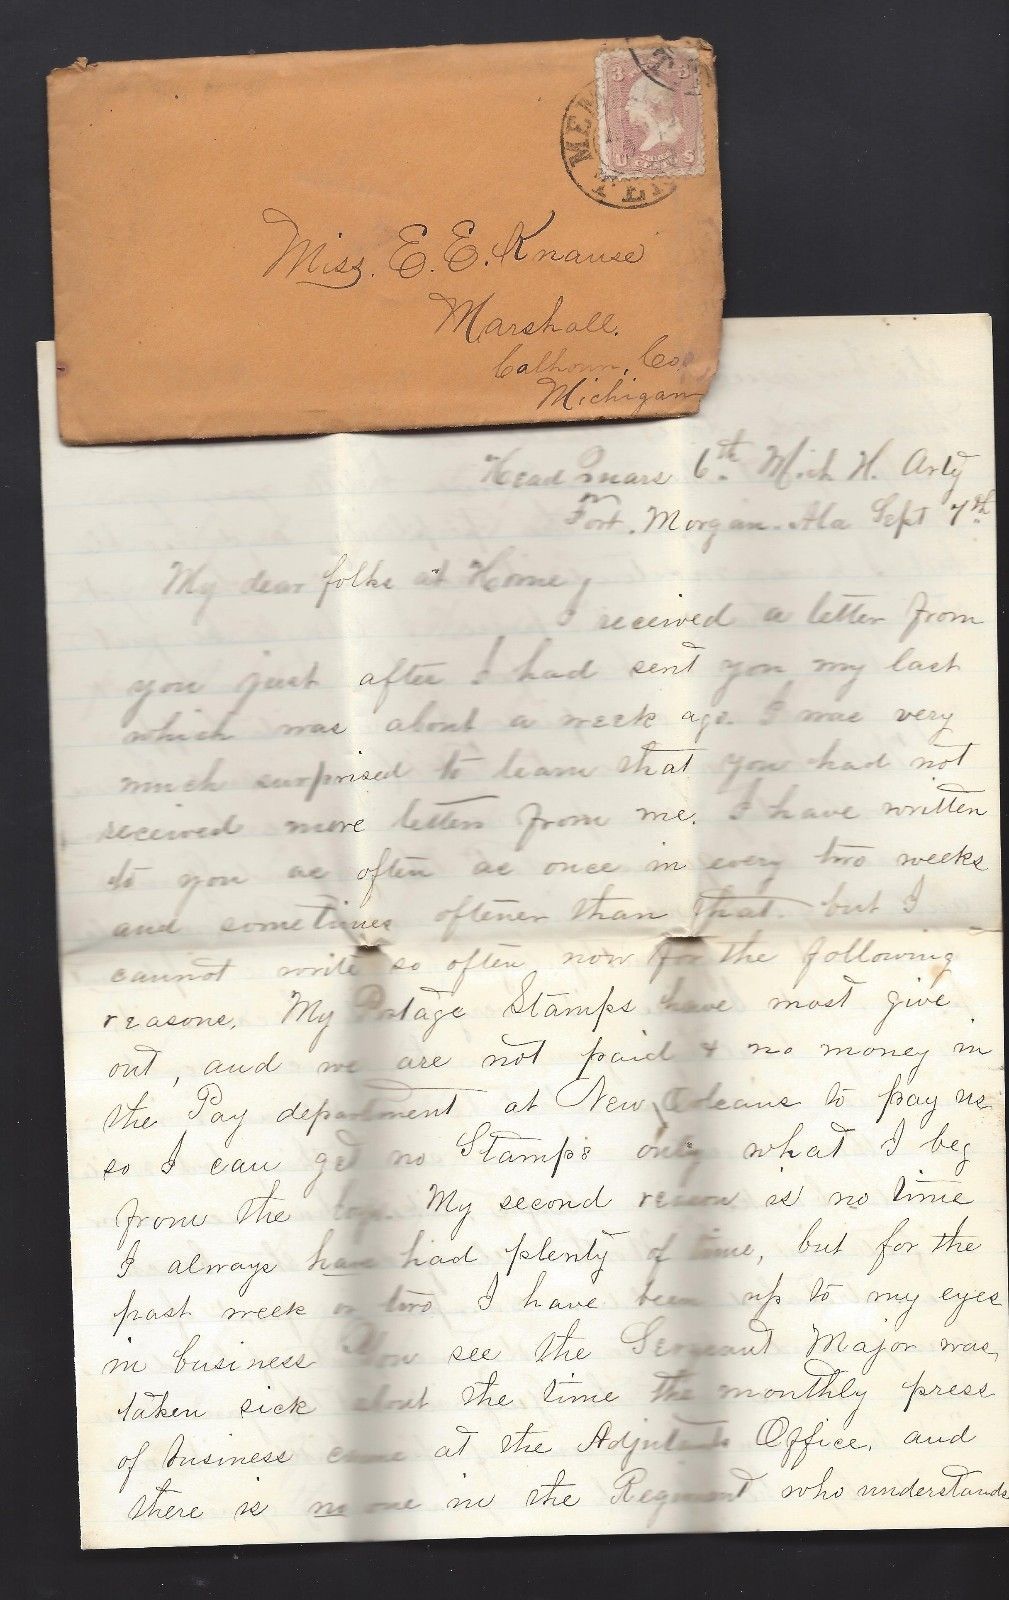 3 3
U S
MEM
Miss. E. E. Knause
Marshall.
Calhoun, Co.
Michigan
Head Quars 6th Mich H. Arty
Fort. Morgan. Ala Sept 7th
My dear folks at Home,
I received a letter from
you just after I had sent you my last
which was about a week ago. I was very
much surprised to learn that you had not
received more letters from me. I have written
to you as often as once in every two weeks
and sometimes oftener than that. but I
cannot write so often now for the following
reasons. My Postage Stamps have most give
out, and we are not paid & no money in
the Pay department at New Orleans to pay us
so I can get no Stamps only what I beg
from the boys. My second reason is no time
I always have had plenty of time, but for the
past week or two I have been up to my eyes
in business You see the Sergeant Major was,
taken sick about the time the monthly press
of business came at the Adjutants Office, and
there is no one in the Regiment who understands